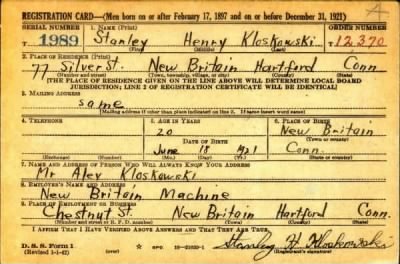 REGISTRATION CARD—(Men born on or after February 17, 1897 and on or before December 31, 1921)
SERIAL NUMBER 1. NAME (Print) ORDER NUMBER
T 1989 Stanley Henry Kloskowski T 12,320
(First) (Middle) (Last)
2. PLACE OF RESIDENCE (Print)
77 Silver St. New Britain Hartford Conn.
(Number and street) (Town, township, village, or city) (County) (State)
[THE PLACE OF RESIDENCE GIVEN ON THE LINE ABOVE WILL DETERMINE LOCAL BOARD
JURISDICTION; LINE 2 OF REGISTRATION CERTIFICATE WILL BE IDENTICAL]
3. MAILING ADDRESS
same
[Mailing address if other than place indicated on line 2. If same insert word same]
4. TELEPHONE 5. AGE IN YEARS 6. PLACE OF BIRTH
20 New Britain
DATE OF BIRTH (Town or county)
June 18 1921 Conn.
(Exchange) (Number) (Mo.) (Day) (Yr.) (State or country)
7. NAME AND ADDRESS OF PERSON WHO WILL ALWAYS KNOW YOUR ADDRESS
Mr Alex Kloskowski
8. EMPLOYER'S NAME AND ADDRESS
New Britain Machine
9. PLACE OF EMPLOYMENT OR BUSINESS
Chestnut St. New Britain Hartford Conn.
(Number and street or R. F. D. number) (Town) (County) (State)
I AFFIRM THAT I HAVE VERIFIED ABOVE ANSWERS AND THAT THEY ARE TRUE.
D. S. S. Form 1
(Revised 1-1-42) GPO 16—21630-1 Stanley H Kloskowski
(Registrant's signature)